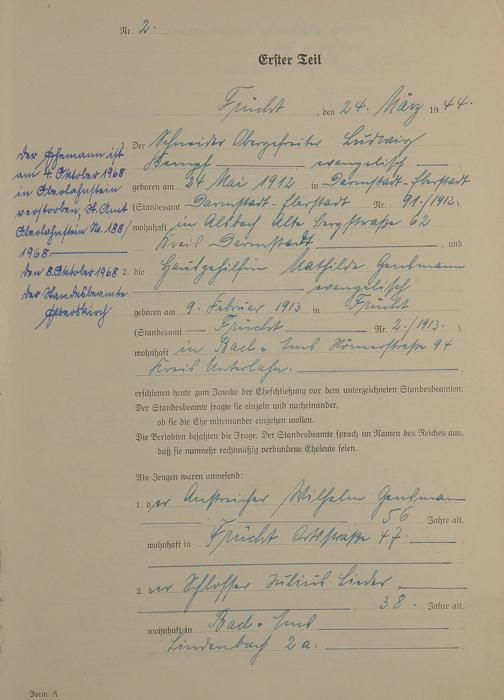 Nr. 2.
Erster Teil
Frücht, den 24. März 1944.
1. Der Schneider Obergefreiter Ludwig
Kempf evangelisch
geboren am 24 Mai 1912 in Darmstadt-Eberstadt
(Standesamt Darmstadt-Eberstadt Nr. 91./1912),
wohnhaft in Alsbach Alte Bergstraße 62
Kreis Darmstadt, und
2. die Hausgehilfin Mathilde
evangelisch
geboren am 9. Februar 1913 in Frücht
(Standesamt Frücht Nr. 2./1913.),
wohnhaft in Bad-Ems Römerstraße 94
Kreis Unterlahn.
erschienen heute zum Zwecke der Eheschließung vor dem unterzeichneten Standesbeamten.
Der Standesbeamte fragte sie einzeln und nacheinander,
ob sie die Ehe miteinander eingehen wollen.
Die Verlobten bejahten die Frage. Der Standesbeamte sprach im Namen des Reiches aus,
daß sie nunmehr rechtmäßig verbundene Eheleute seien.
Als Zeugen waren anwesend:
1. der Anstreicher Wilhelm
56 Jahre alt,
wohnhaft in Frücht Ortsstraße 47.
2. der Schlosser Julius Lieder
38. Jahre alt,
wohnhaft in Bad-Ems
Lindenbach 2a.
Form. A
Der Ehemann ist
am 4. Oktober 1968
in Oberlahnstein
verstorben, St. Amt
Oberlahnstein No. 188/
1968.
den 8. Oktober 1968
Der Standesbeamte